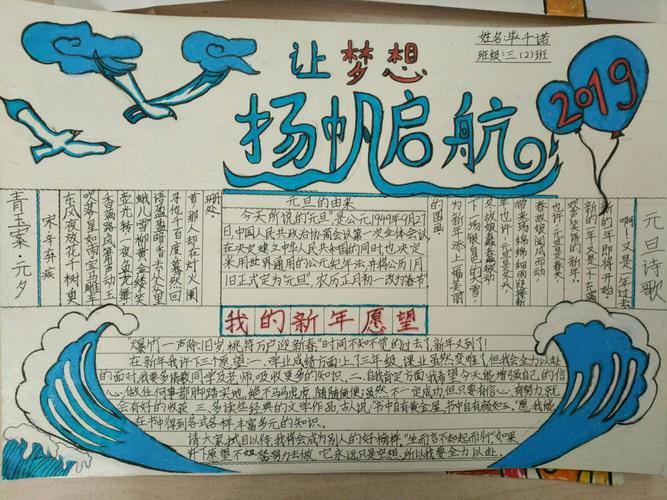 姓名:毕千诺
班级:三(2)班
让梦想
扬帆启航
2019
青玉案·元夕
宋·辛弃疾
东风夜放花千树 更
吹落星如雨 宝马雕车
香满路 凤箫声动 玉
壶光转 一夜鱼龙舞
蛾儿雪柳黄金缕 笑
语盈盈暗香去 众里
寻他千百度 蓦然回
首 那人却在灯火阑
珊处
元旦的由来
今天所说的"元旦"是公元1949年9月27
日,中国人民共政治协商会议第一次全体会议
在决定建立中华人民共和国的同时,也决定
采用世界通用的公元纪年法,并将公历1月
1日正式定为"元旦",农历正月初一改为"春节"
元旦诗歌
啊!又是一年过去
新的一年 即将开始
新的一年又是一个
春故娘闻风而动
也许 元旦是春天
带来绵绵细雨
年也许 元旦是冬天
下一场银白的雪
为新年添上一幅美丽
的图画
我的新年愿望
"爆竹一声除旧岁,桃符万户迎新春"时间不知不觉的过去了,新年又到了!
在新年我许下三个愿望:一.学业成绩方面:上了三年级,课业虽然变难了,但我会全力以赴
的面对,我要多请教同学及老师,吸收更多的知识。二.自我肯定方面:我希望今天能增强自己的信
心,做任何事都脚踏实地,绝不马马虎虎,随随便便;虽然,不一定成功,但只要有信心、有努力,就
会有好的收获。三.多读些经典的文学作品,古人说,"书中自有黄金屋,书中自有颜如玉。"愿我能
在书中得到各式各样丰富多元的知识。
请大家拭目以待,我将会成为别人的好榜样,"坐而言不如起而行"如果
许下愿望不如努力去做,它永远只是空想,所以我要全力以赴。